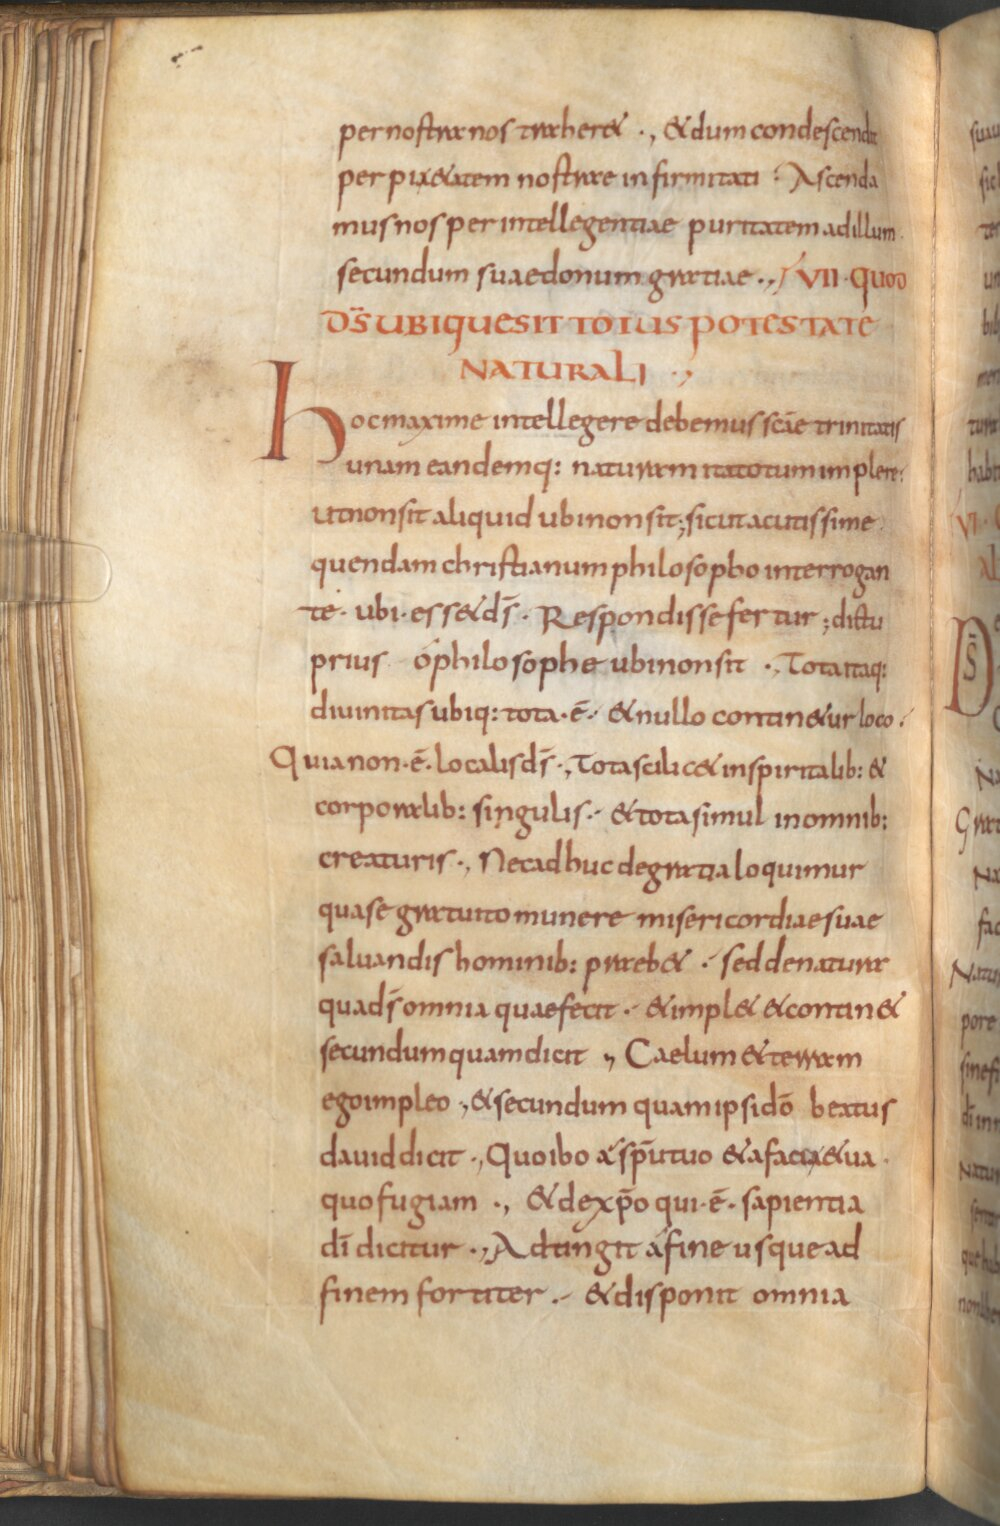 per nostra nos traher& ., & dum condescendit
per pi&atem nostrae infirmitati : Ascenda
mus nos per intellegentiae puritatem ad illum.
secundum suae donum gratiae ., VII · Quod
DS̄ UBIQUE SIT TOTUS POTESTATE
NATURALI .,
Hoc maxime intellegere debemus scāe trinitatis
unam eandemq: naturam ita totum implere.
ut non sit aliquid ubi non sit; sicut acutissime
quendam christianum philosopho interrogan
te · ubi · ess& ds̄ · Respondisse fertur ; dictu
prius ó philosophe ubi non sit ., Tota itaq:
divinitas ubiq: tota · ē · & nullo contin&ur loco .
Quia non · ē · localis ds̄ ., Tota scilic& in spiritalib: &
corporalib: singulis · & tota simul in omnib:
creaturis ., Nec adhuc de gratia loquimur
qua se gratuito munere misericordiae suae
salvandis hominib: praeb& · sed de natura
qua ds̄ omnia quae fecit · & impl& & contin&
secundum quam dicit ,, Caelum & terram
ego impleo ., & secundum quam ipsi dō beatus
david dicit ., Quo ibo á spū tuo & a faciae tua ·
quo fugiam ., & de xp̄o qui · ē · sapientia
dī dicitur ., Adtingit á fine usque ad
finem fortiter · & disponit omnia